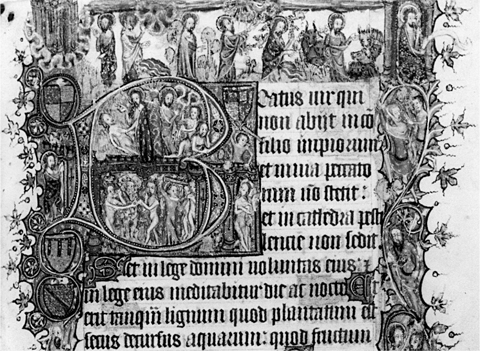 Beatus uir qui
non abijt in co
silio impiorum
et in uia peccato
rum nō stetit :
et in cathedra pesti
lencie non sedit
Set in lege domini uoluntas eius :
in lege eius meditabitur die ac nocte Et
erit tanqm̄ lignum quod plantatum est
secus decursus aquarum : quod fructum